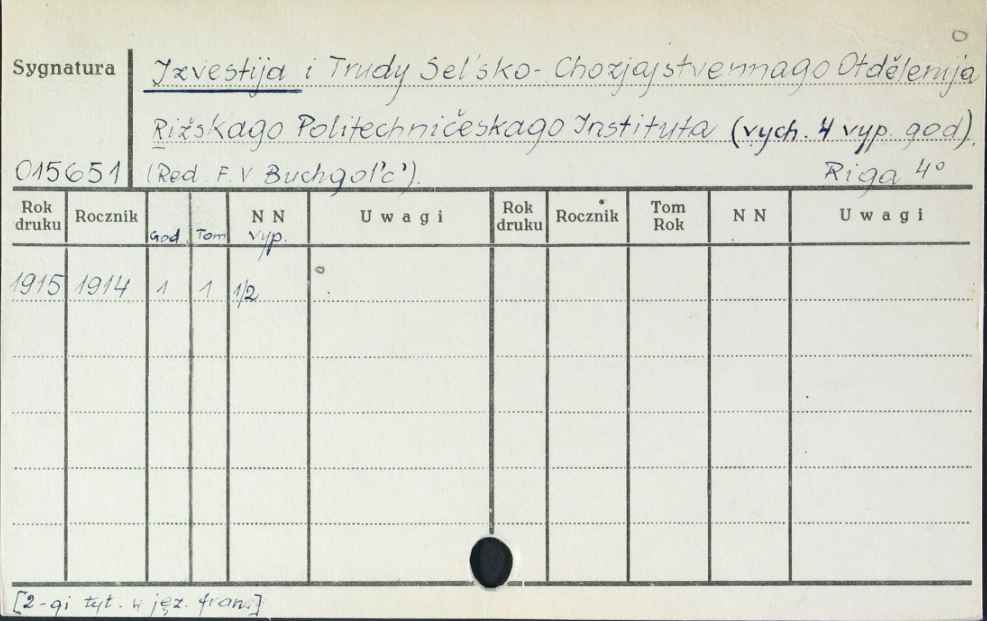 Sygnatura
Izvestija i Trudy Sel'sko-Chozjajstvennago Otdělenija
Rižskago Politechničeskago Instituta (vych. 4 vyp. god).
015651 (Red. F. V Buchgol'c'). Riga 4°
Rok druku Rocznik God Tom NN vyp. Uwagi Rok druku Rocznik Tom Rok NN Uwagi
1915 1914 1 1 1/2
[2-gi tyt. w jęz. franc]